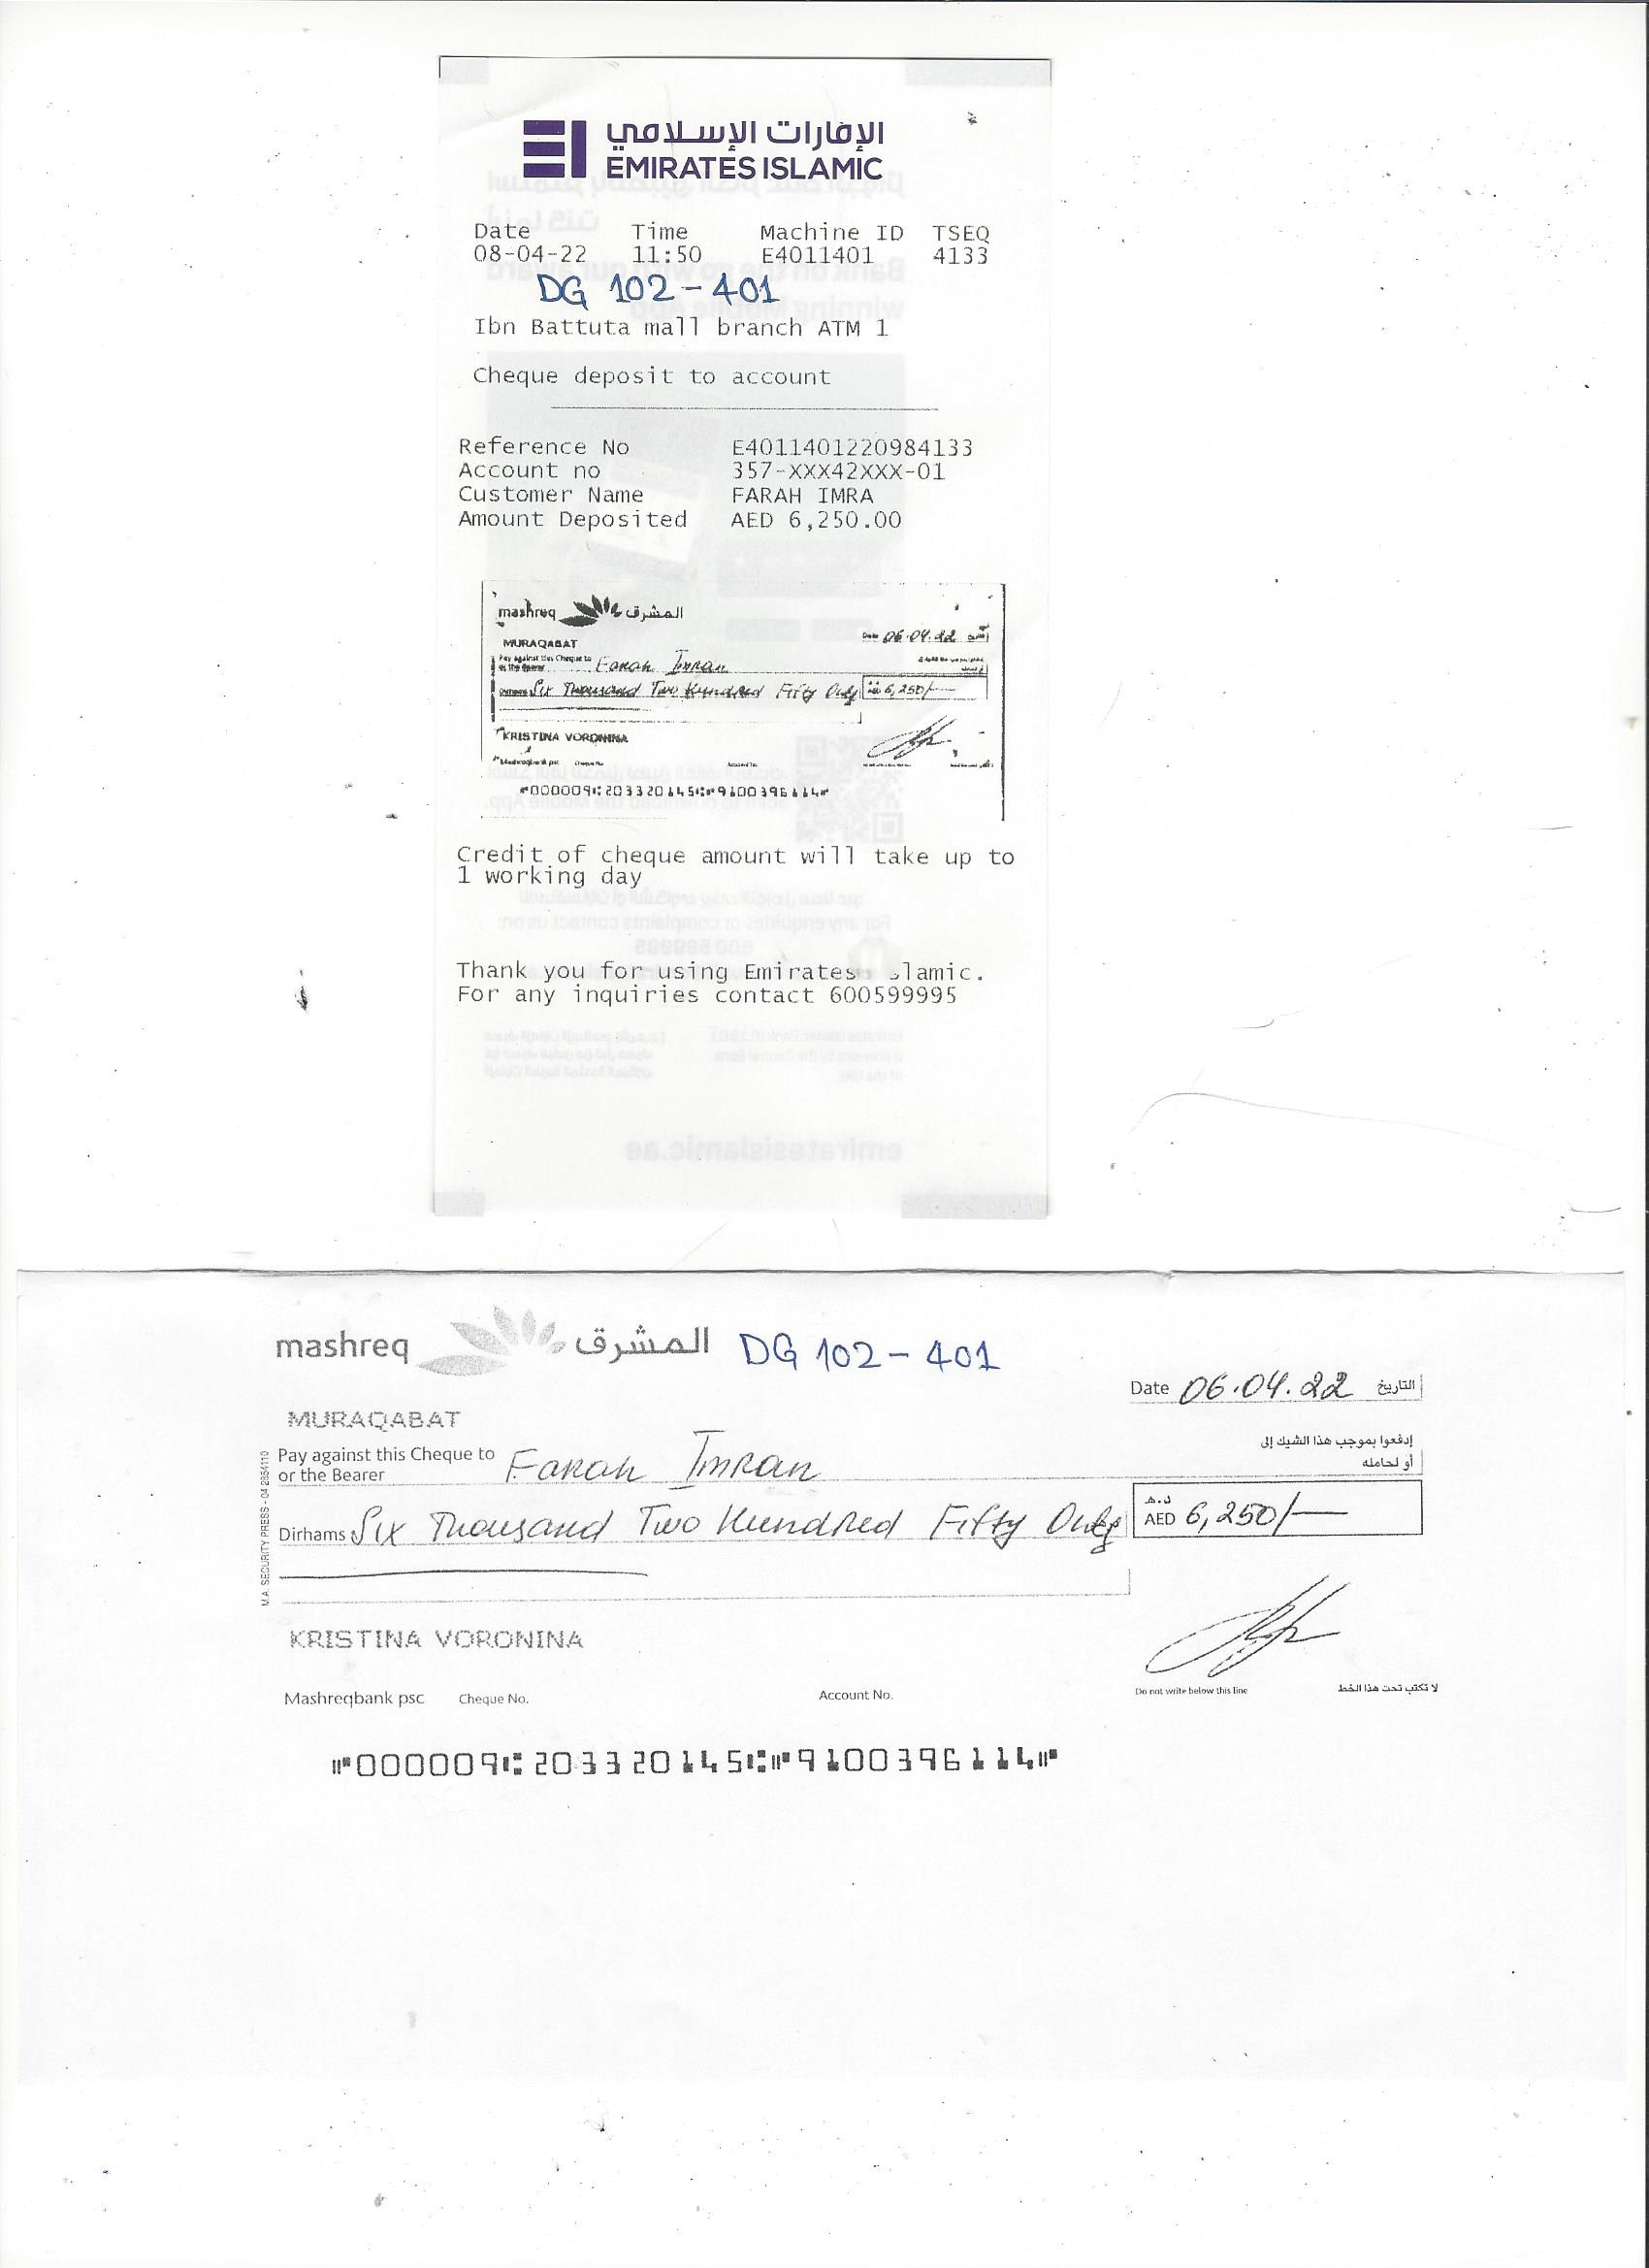 الإمارات الإسلامي
EMIRATES ISLAMIC
Date Time Machine ID TSEQ
08-04-22 11:50 E4011401 4133
DG 102-401
Ibn Battuta mall branch ATM 1
Cheque deposit to account
Reference No E4011401220984133
Account no 357-XXX42XXX-01
Customer Name FARAH IMRA
Amount Deposited AED 6,250.00
mashreq المشرق
Date 06.04.22
MURAQABAT
Pay against this Cheque to
or the Bearer Farah Imran
Dirhams Six Thousand Two Hundred Fifty Only 6,250/-
KRISTINA VORONINA
Mashreqbank psc Cheque No. Account No.
⑈000009⑆203320145⑆⑈9100396114⑈
Credit of cheque amount will take up to
1 working day
Thank you for using Emirates lamic.
For any inquiries contact 600599995
emiratesislamic.ae
mashreq المشرق DG 102-401
Date 06.04.22 التاريخ
MURAQABAT
Pay against this Cheque to إدفعوا بموجب هذا الشيك إلى
or the Bearer Farah Imran أو لحامله
Dirhams Six Thousand Two Hundred Fifty Only د.هـ AED 6,250/-
M.A. SECURITY PRESS - 04 2854110
KRISTINA VORONINA
Mashreqbank psc Cheque No. Account No. Do not write below this line لا تكتب تحت هذا الخط
⑈000009⑆203320145⑆⑈9100396114⑈